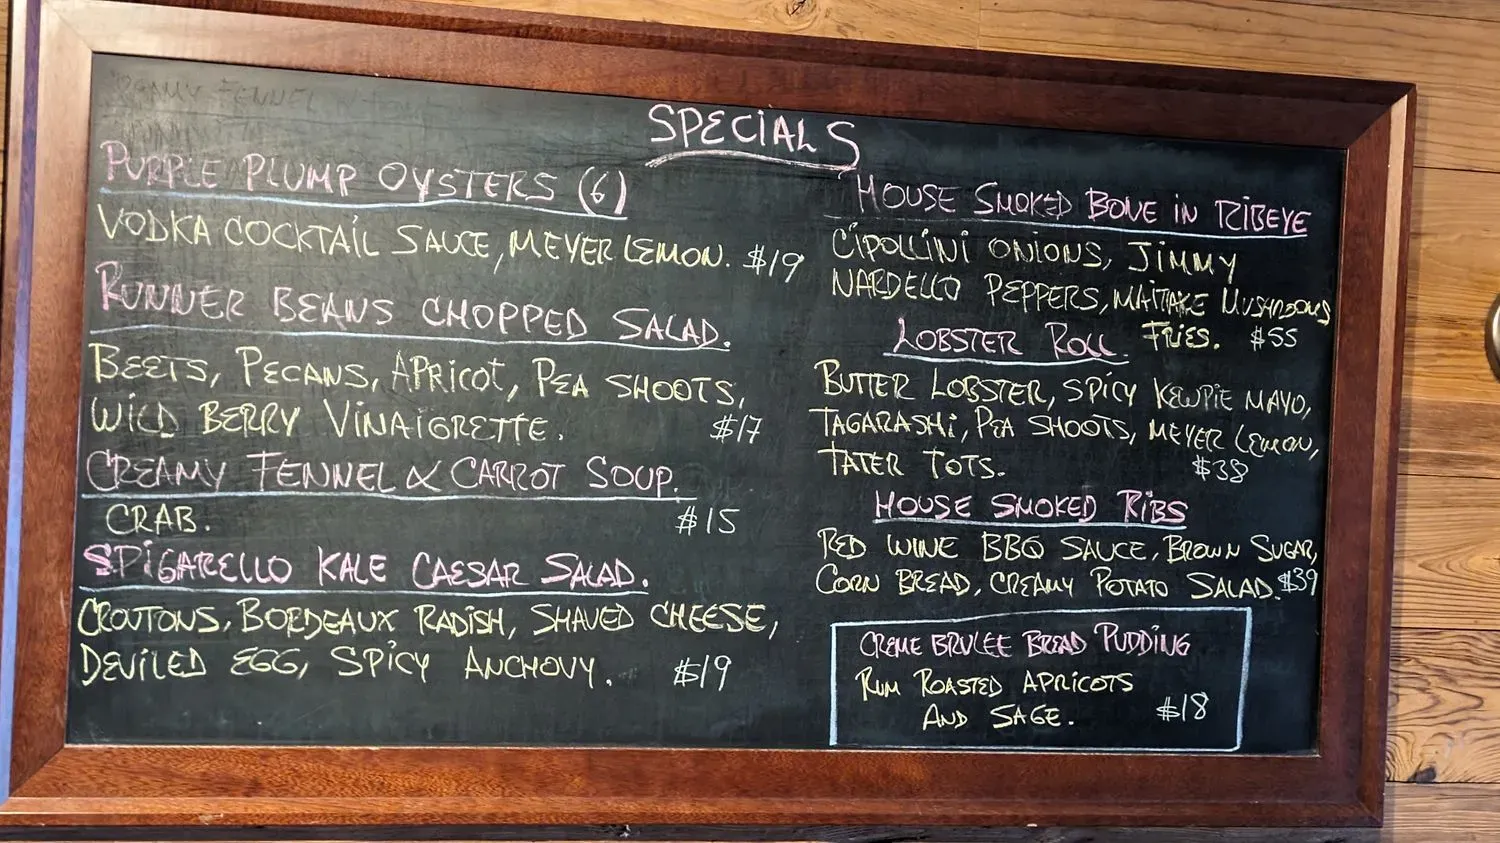 SPECIALS
PURPLE PLUMP OYSTERS (6)
VODKA COCKTAIL SAUCE, MEYER LEMON. $19
RUNNER BEANS CHOPPED SALAD.
BEETS, PECANS, APRICOT, PEA SHOOTS,
WILD BERRY VINAIGRETTE. $17
CREAMY FENNEL & CARROT SOUP.
CRAB. $15
SPIGARELLO KALE CAESAR SALAD.
CROUTONS, BORDEAUX RADISH, SHAVED CHEESE,
DEVILED EGG, SPICY ANCHOVY. $19
HOUSE SMOKED BONE IN RIBEYE
CIPOLLINI ONIONS, JIMMY
NARDELLO PEPPERS, MAITAKE MUSHROOMS
FRIES. $55
LOBSTER ROLL.
BUTTER LOBSTER, SPICY KEWPIE MAYO,
TAGARASHI, PEA SHOOTS, MEYER LEMON,
TATER TOTS. $38
HOUSE SMOKED RIBS
RED WINE BBQ SAUCE, BROWN SUGAR,
CORN BREAD, CREAMY POTATO SALAD. $39
CREME BRULEE BREAD PUDDING
RUM ROASTED APRICOTS
AND SAGE. $18